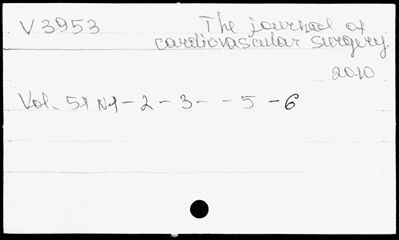 V 3953 The journal of
cardiovascular surgery.
2010
Vol. 51 N1 - 2 - 3 - - 5 - 6